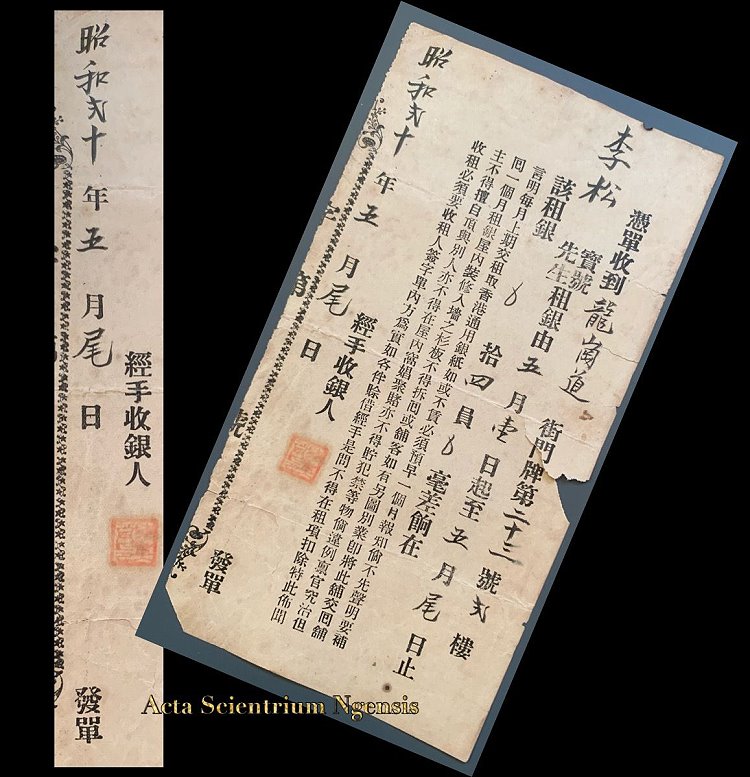 憑單收到龍崗道街門牌第二十三號弍樓
李松寶號先生租銀由五月壹日起至五月尾日止
該租銀拾四員毫差餉在
言明每月上期交租取香港通用銀紙如或不賃必須預早一個月報知倘不先聲明要補
囘一個月租銀屋內裝修入墻之杉板不得拆囘或舖客如有另圖別業即將此舖交囘舖
主不得擅自頂與別人亦不得在屋內窩娼聚賭亦不得貯犯禁等物倘違例稟官究治但
收租必須要收租人簽字單內方爲實如各件賒借經手是問不得在租項扣除特此佈聞
經手收銀人
昭和弍十年五月尾日發單
經手收銀人
昭和弍十年五月尾日發單
Acta Scientrium Ngensis